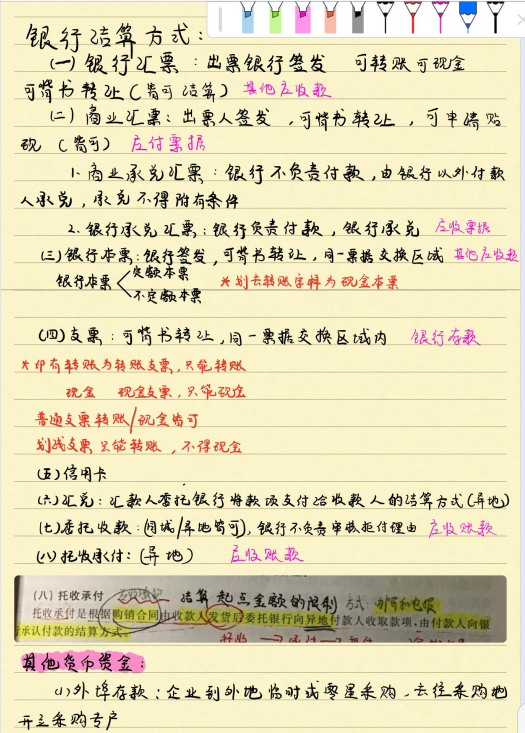 银行结算方式：
(一)银行汇票：出票银行签发 可转账可现金
可背书转让(皆可结算) 其他应收款
(二)商业汇票：出票人签发，可背书转让，可申请贴
现(皆可) 应付票据
1.商业承兑汇票：银行不负责付款，由银行以外付款
人承兑，承兑不得附有条件
2.银行承兑汇票：银行负责付款，银行承兑 应收票据
(三)银行本票：银行签发，可背书转让，同一票据交换区域 其他应收款
银行本票 定额本票
不定额本票
*划去转账字样为现金本票
(四)支票：可背书转让，同一票据交换区域内 银行存款
*印有转账为转账支票，只能转账
现金 现金支票，只能现金
普通支票转账/现金皆可
划线支票只能转账，不得现金
(五)信用卡
(六)汇兑：汇款人委托银行将款项支付给收款人的结算方式(异地)
(七)委托收款：(同城/异地皆可)，银行不负责审核拒付理由 应收账款
(八)托收承付：(异地) 应收账款
(八)托收承付 结算起点金额的限制 方式：邮寄和电报
托收承付是根据购销合同由收款人发货后委托银行向异地付款人收取款项，由付款人向银
行承认付款的结算方式。
其他货币资金：
(1)外埠存款：企业到外地临时或零星采购，去往采购地
开立采购专户